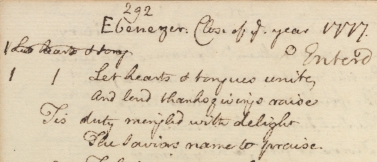 292
Ebenezer. Close of ye. year 1777.
1 Let hearts & tong
Enter'd
1 1 Let hearts & tongues unite,
And loud thanksgivings raise
Tis duty mingled with delight
The Saviors name to praise.